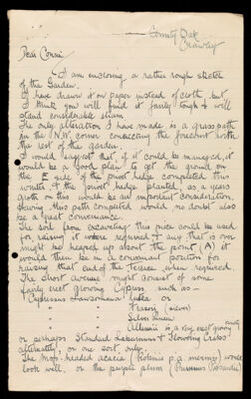 County Oak
Crawley
Dear Connie
I am enclosing a rather rough sketch
of the Garden.
I have drawn it on paper instead of cloth but
I think you will find it fairly tough & will
stand considerable strain.
The only alteration I have made is a grass path
in the N.W. corner connecting the forecourt with
the rest of the garden.
I would suggest that, if it could be managed, it
would be a good plan to get the ground on
the E side of the privet hedge completed this
winter & the privet hedge planted, as a years
growth on this would be an important consideration.
Having this path completed would no doubt also
be a great convenience.
The soil from excavating this piece could be used
for raising it where required & any that is over
might be heaped up about the point (A) it
would then be in a convenient position for
raising that end of the Terrace when required.
The short avenue might consist of some
fairly erect growing Cypress such as -
"Cupressus Lawsoniana lutea or
" " Fraseri (green)
" " Silver Queen
" " Allumii is a very erect growing variety
or perhaps Standard Laburnums & Flowering Crabs
alternately, or one sort only.
The Mop-headed acacia (Robinia p.a. inermis) would
look well, or the purple plum (Prunus Pissardii)